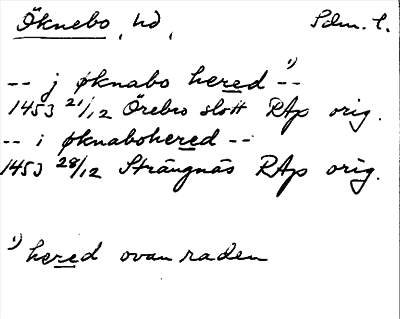 Öknebo, hd, Sdm. l.
-- j øknabo hered ¹⁾ --
1453 21/12 Örebro slott RAp orig.
-- i øknabohered --
1453 28/12 Strängnäs RAp orig.
¹⁾ hered ovan raden